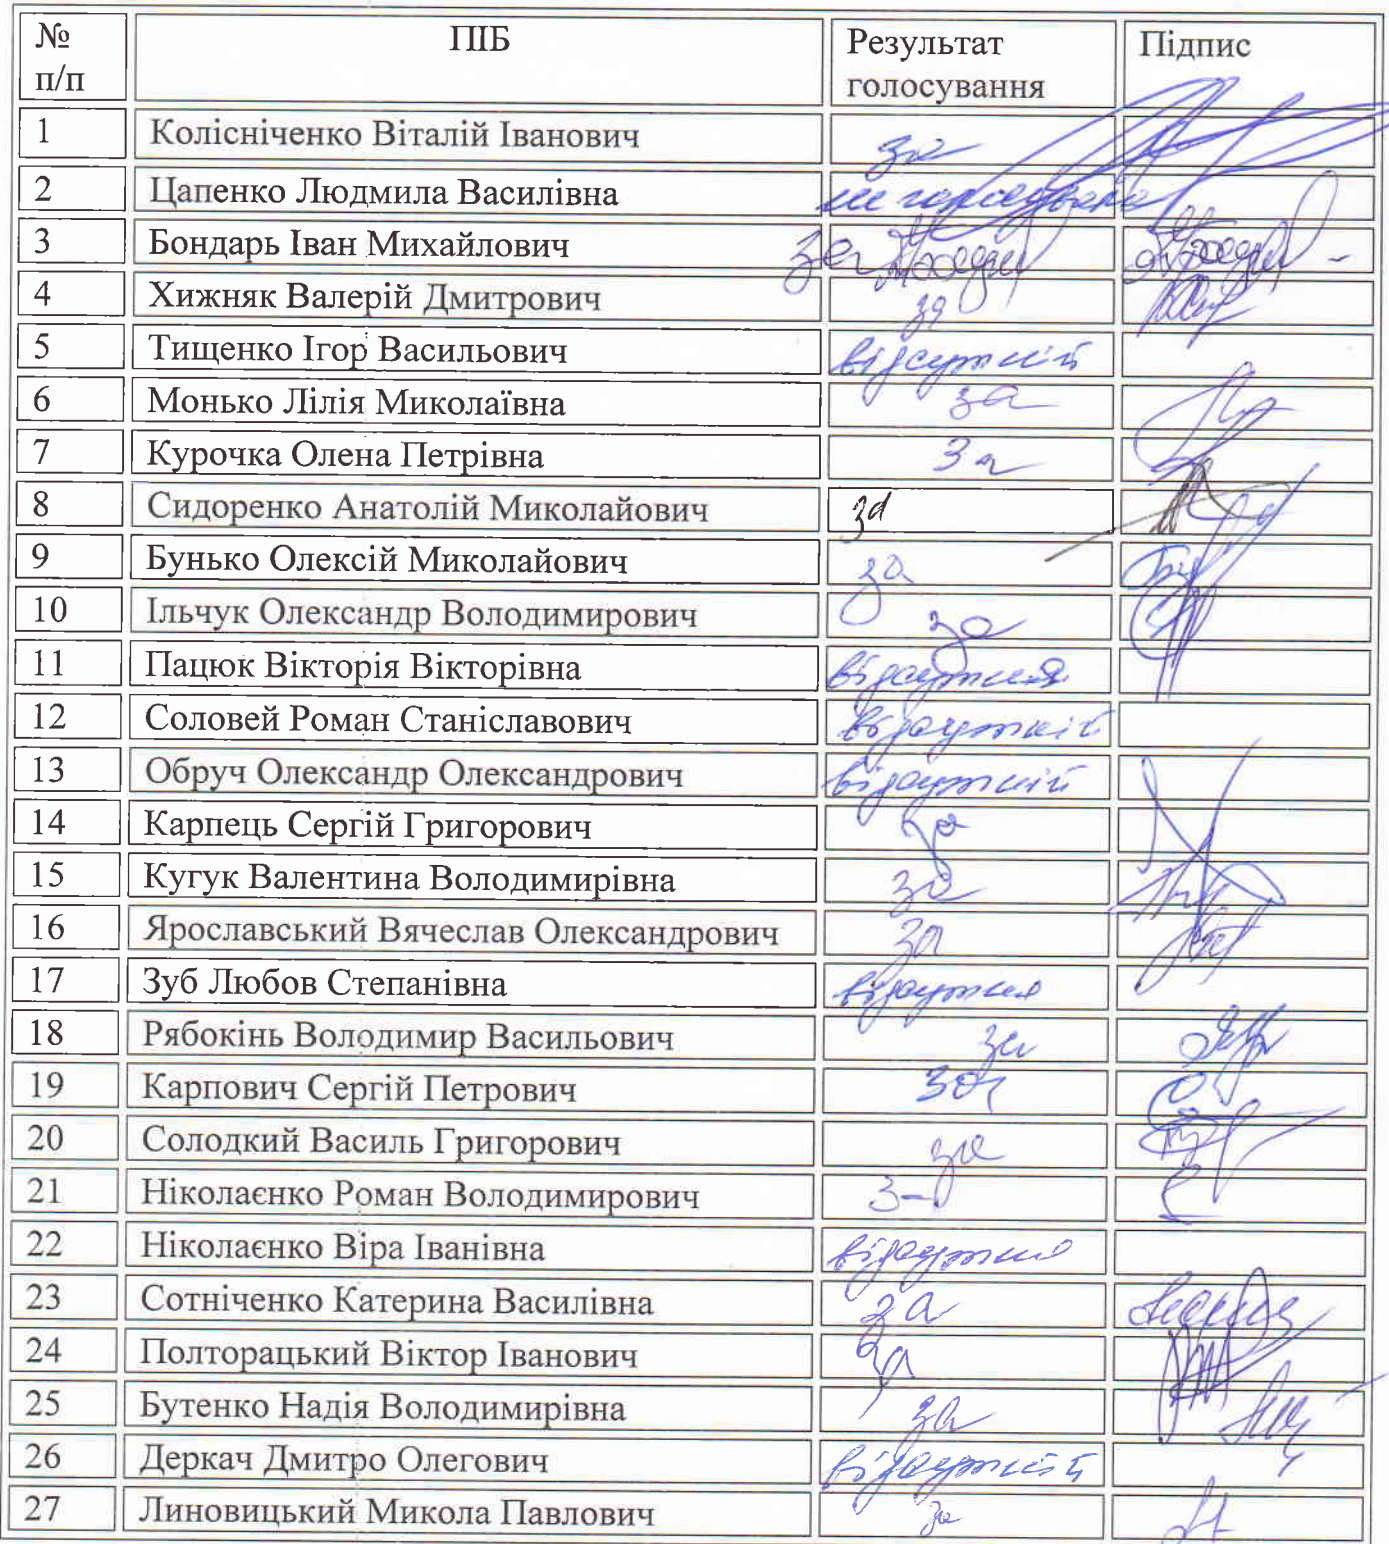 № п/п ПІБ Результат голосування Підпис
1 Колісніченко Віталій Іванович за
2 Цапенко Людмила Василівна не голосувала
3 Бондарь Іван Михайлович за
4 Хижняк Валерій Дмитрович за
5 Тищенко Ігор Васильович відсутній
6 Монько Лілія Миколаївна за
7 Курочка Олена Петрівна за
8 Сидоренко Анатолій Миколайович за
9 Бунько Олексій Миколайович за
10 Ільчук Олександр Володимирович за
11 Пацюк Вікторія Вікторівна відсутня
12 Соловей Роман Станіславович відсутній
13 Обруч Олександр Олександрович відсутній
14 Карпець Сергій Григорович за
15 Кугук Валентина Володимирівна за
16 Ярославський Вячеслав Олександрович за
17 Зуб Любов Степанівна відсутня
18 Рябокінь Володимир Васильович за
19 Карпович Сергій Петрович за
20 Солодкий Василь Григорович за
21 Ніколаєнко Роман Володимирович за
22 Ніколаєнко Віра Іванівна відсутня
23 Сотніченко Катерина Василівна за
24 Полторацький Віктор Іванович за
25 Бутенко Надія Володимирівна за
26 Деркач Дмитро Олегович відсутній
27 Линовицький Микола Павлович за